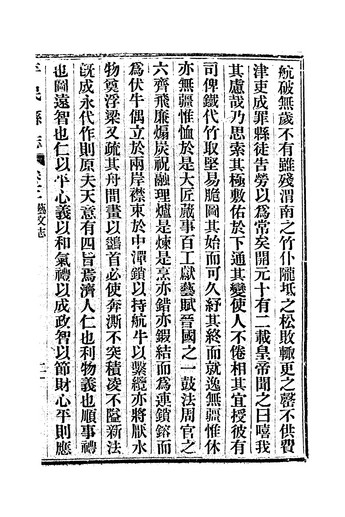 航破無歲不有雖殘渭南之竹仆隴坻之松敗輒更之罄不供費
津吏成罪縣徒告勞以爲常矣開元十有二載皇帝聞之曰嘻我
其慮哉乃思索其極敷佑於下通其變使人不倦相其宜授彼有
司俾鐵代竹取堅易脆圖其始而可久紓其終而就逸無疆惟休
亦無疆惟恤於是大匠蕆事百工獻藝賦晉國之一鼓法周官之
六齊飛廉煽炭祝融理爐是煉是烹亦錯亦鍛結而爲連鎖鎔而
爲伏牛偶立於兩岸襟束於中潬鎖以持航牛以縶纜亦將厭水
物奠浮梁又疏其舟間畫以鷁首必使奔澌不突積凌不隘新法
旣成永代作則原夫天意有四旨焉濟人仁也利物義也順事禮
也圖遠智也仁以平心義以和氣禮以成政智以節財心平則應
平民縣志 藝文志